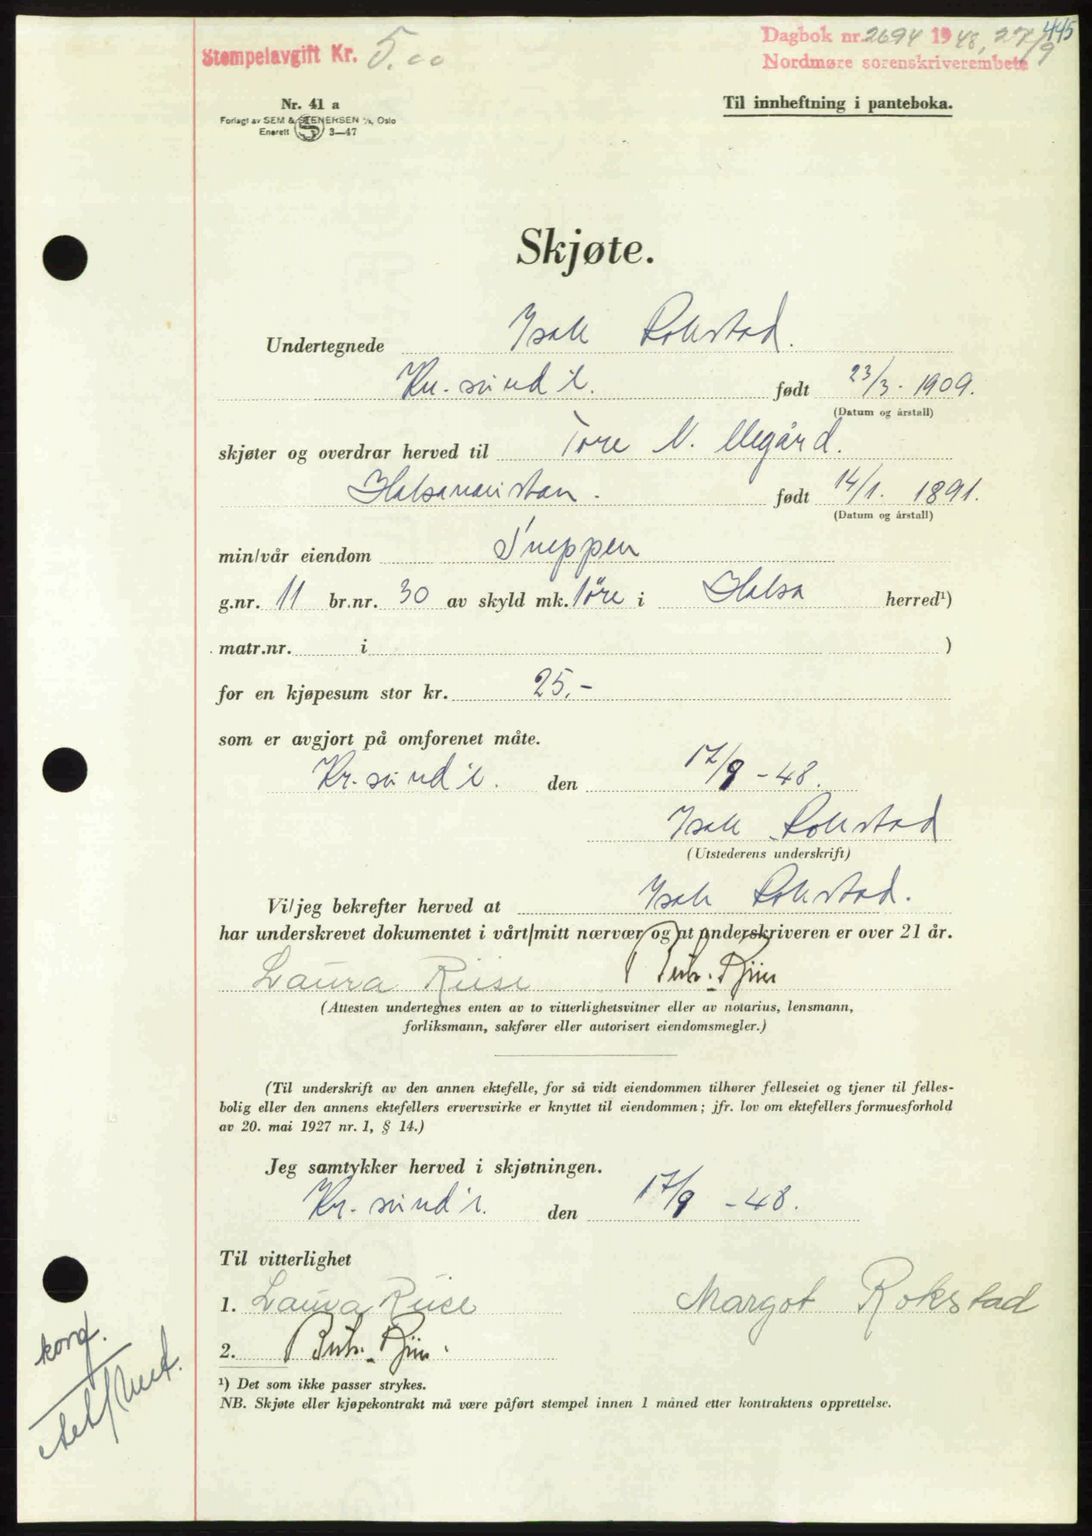 445
Stempelavgift Kr. 5.00
Dagbok nr. 2694 1948, 27/9
Nordmøre sorenskriverembete
Nr. 41 a
Forlagt av SEM & STENERSEN A/S, Oslo
Enerett S 3—47
Til innheftning i panteboka.
Skjøte.
Undertegnede Isak Rokstad.
Kr.sund N. født 23/3-1909.
(Datum og årstall)
skjøter og overdrar herved til Tore N. Megård.
Halsanaustan. født 14/1. 1891.
(Datum og årstall)
min/vår eiendom Sneppen
g.nr. 11 br.nr. 30 av skyld mk. 1 øre i Halsa herred¹)
matr.nr. i )
for en kjøpesum stor kr. 25,-
som er avgjort på omforenet måte.
Kr.sund N. den 17/9-48.
Isak Rokstad
(Utstederens underskrift)
Vi/jeg bekrefter herved at Isak Rokstad.
har underskrevet dokumentet i vårt/mitt nærvær og at underskriveren er over 21 år.
Laura Riise
(Attesten undertegnes enten av to vitterlighetsvitner eller av notarius, lensmann,
forliksmann, sakfører eller autorisert eiendomsmegler.)
(Til underskrift av den annen ektefelle, for så vidt eiendommen tilhører felleseiet og tjener til felles-
bolig eller den annens ektefellers ervervsvirke er knyttet til eiendommen; jfr. lov om ektefellers formuesforhold
av 20. mai 1927 nr. 1, § 14.)
Jeg samtykker herved i skjøtningen.
Kr.sund N. den 17/9-48.
Til vitterlighet
1. Laura Riise Margot Rokstad
2.
korq.
¹) Det som ikke passer strykes.
NB. Skjøte eller kjøpekontrakt må være påført stempel innen 1 måned etter kontraktens opprettelse.